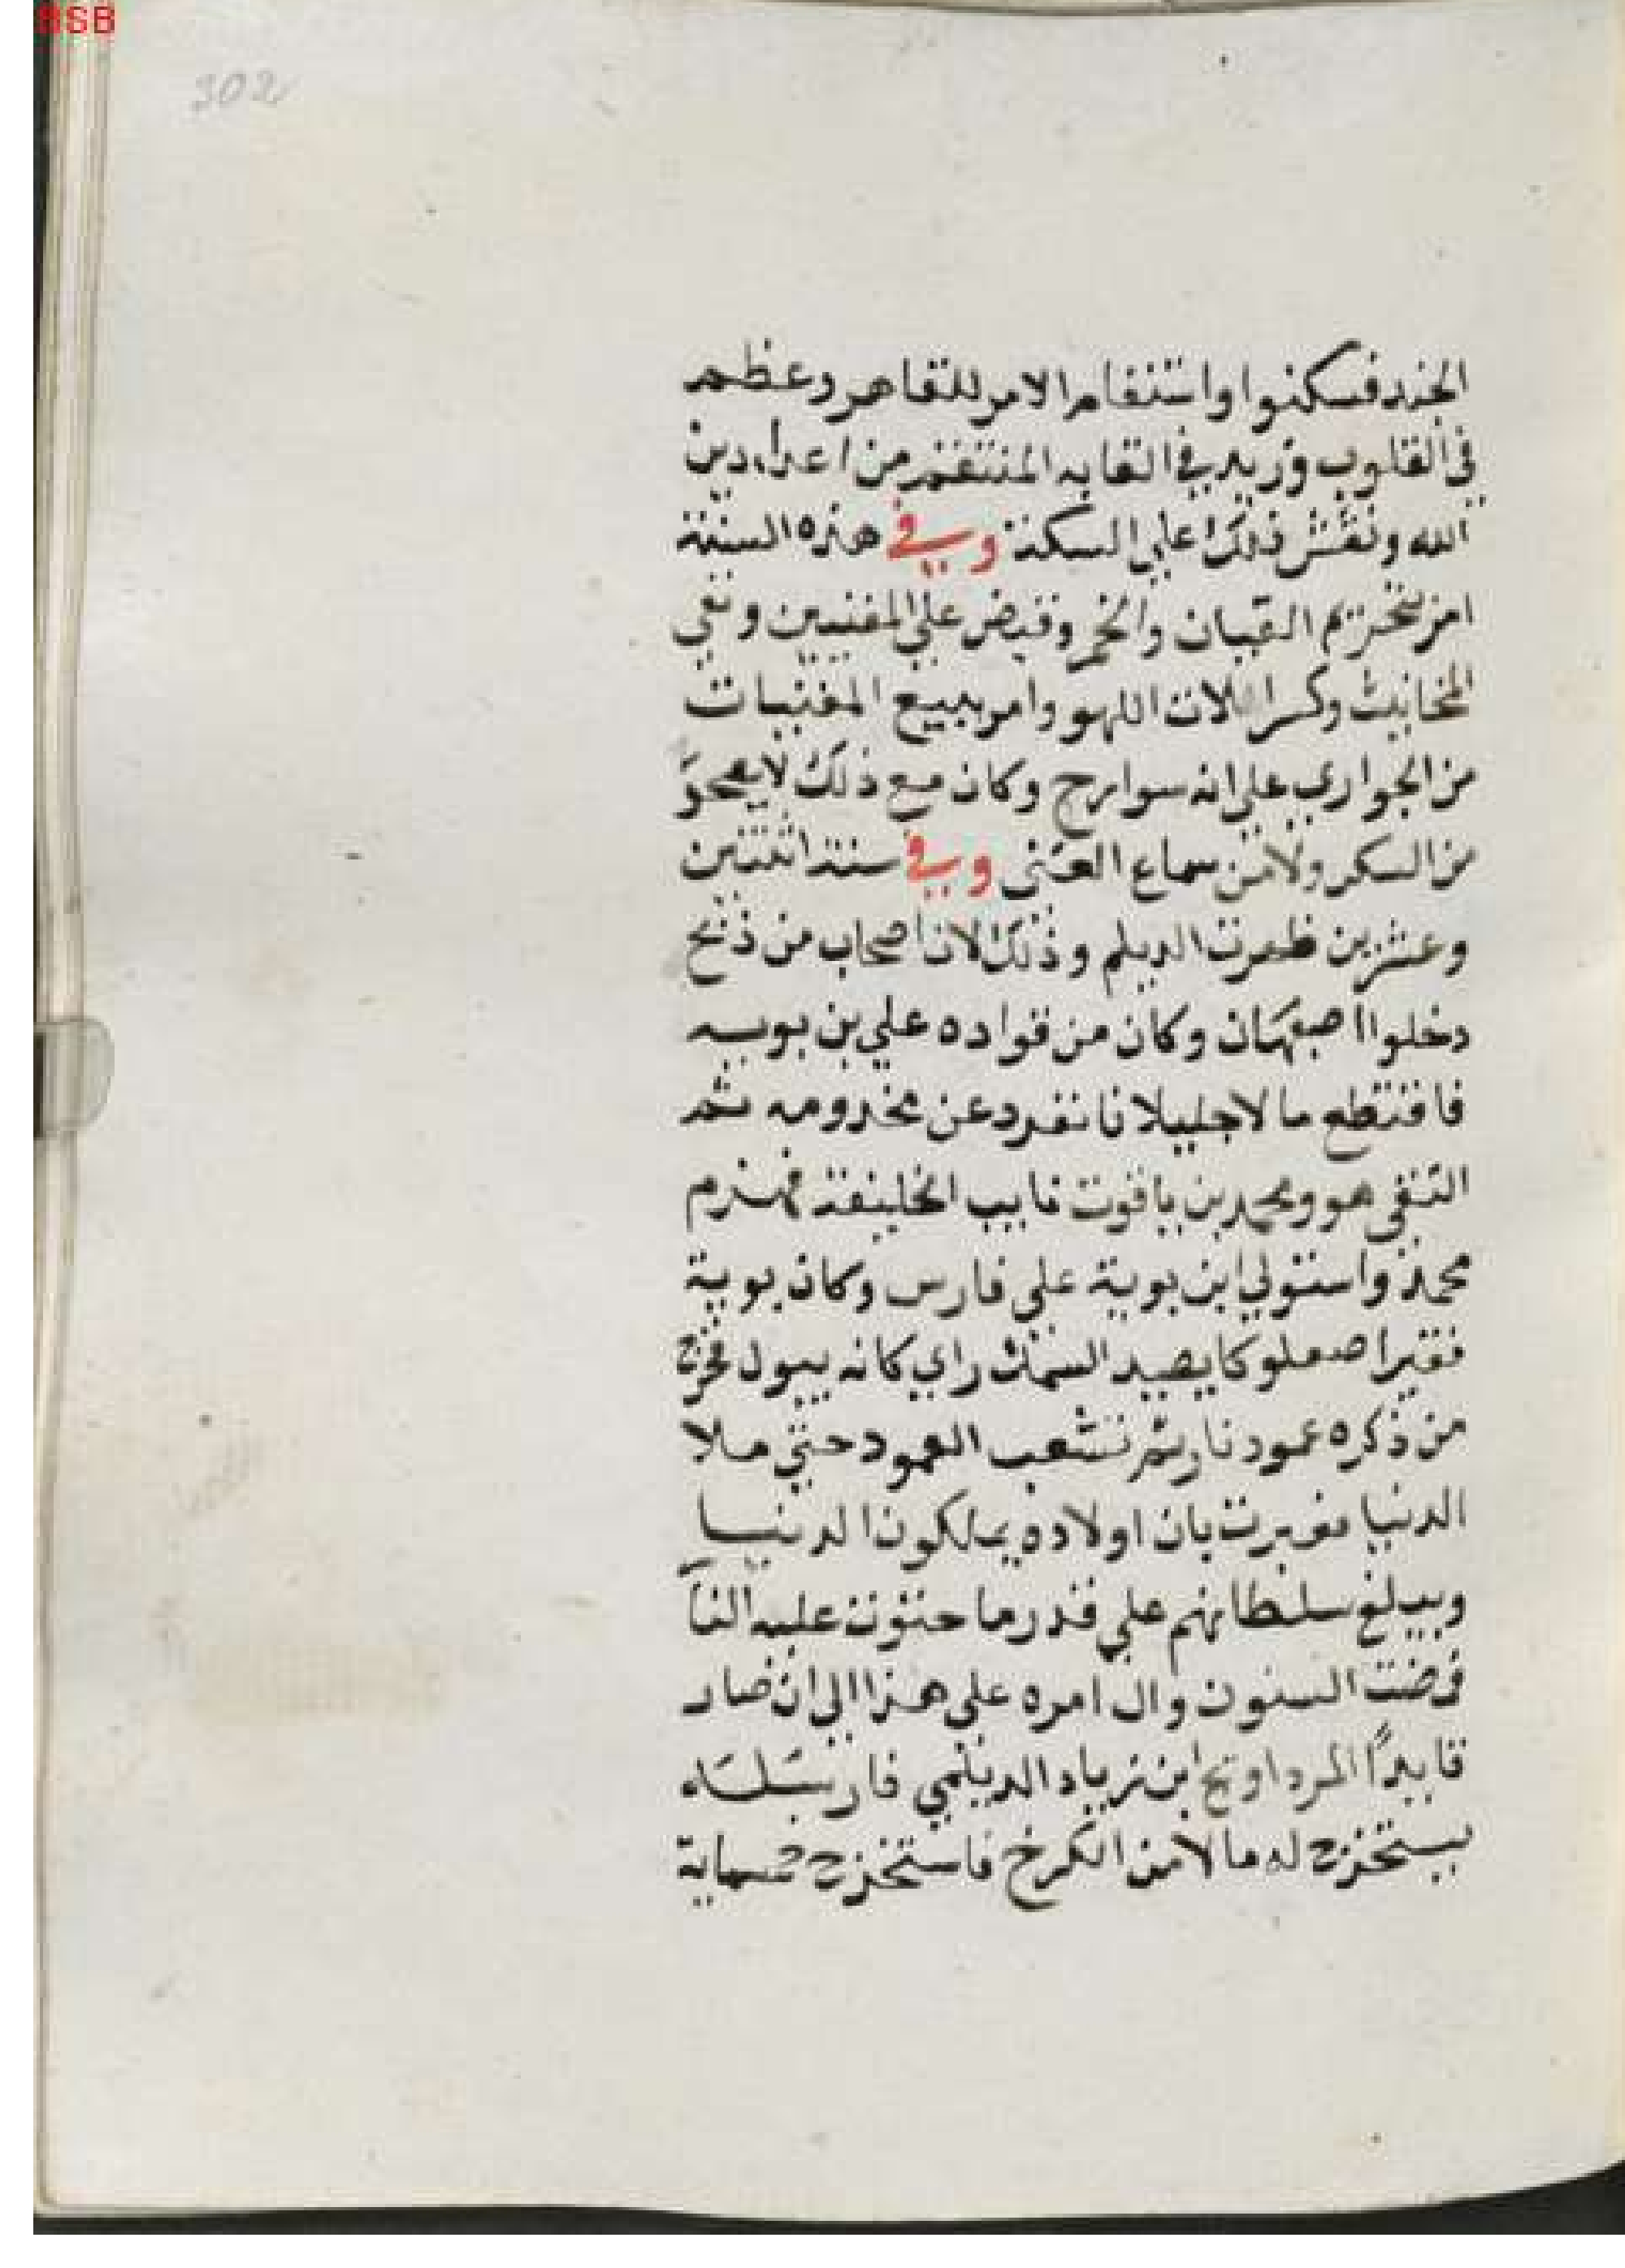 BSB
302
الجند فسكنوا واستقام الامر للقاهر وعظم
في القلوب وزيد في القابه المنتقم من اعداء دين
الله ونقش ذلك علي السكة وفي هذه السنة
امر بتحريم القيان والخمر وقبض علي المغنيين ونفي
المخانيث وكسر الات اللهو وامر ببيع المغنيات
من الجواري علي انه سوارج وكان مع ذلك لا يصحو
من السكر ولا من سماع الغنى وفي سنة اثنتين
وعشرين ظهرت الديلم وذلك لان اصحاب من ذيح
دخلوا اصبهان وكان من قواده علي بن بويه
فاقتطع مالا جليلا فانفرد عن مخدومه ثم
التقي هو ومحمد بن ياقوت نايب الخليفة فهزم
محمد واستولي ابن بوية علي فارس وكان بوية
فقيرا صعلوكا يصيد السمك راي كانه يبول فخرج
من ذكره عمود نار ثم تشعب العمود حتي ملا
الدنيا فعبرت بان اولاده يملكون الدنيا
ويبلغ سلطانهم علي قدر ما حتوت عليه النا
فمضت السنون وال امره علي هذا الي ان صار
قايدًا المرداويح ابن زياد الديلمي فارسله
يستخرج له مالا من الكرخ فاستخرج خمسماية